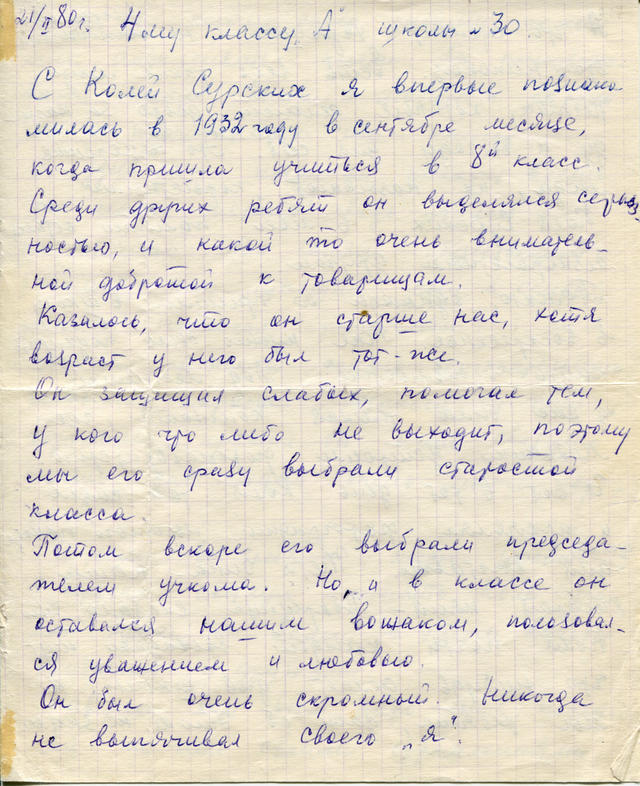 21/II 80 г. 4му классу "А" школы № 30.
С Колей Сурских я впервые познако
милась в 1932 году в сентябре месяце,
когда пришла учиться в 8й класс.
Среди других ребят он выделялся серьёз-
ностью, и какой то очень вниматель-
ной добротой к товарищам.
Казалось, что он старше нас, хотя
возраст у него был тот-же.
Он защищал слабых, помогал тем,
у кого что либо не выходит, поэтому
мы его сразу выбрали старостой
класса.
Потом вскоре его выбрали председа-
телем учкома. Но, и в классе он
оставался нашим вожаком, пользовал-
ся уважением и любовью.
Он был очень скромный. Никогда
не выпячивал своего „я".